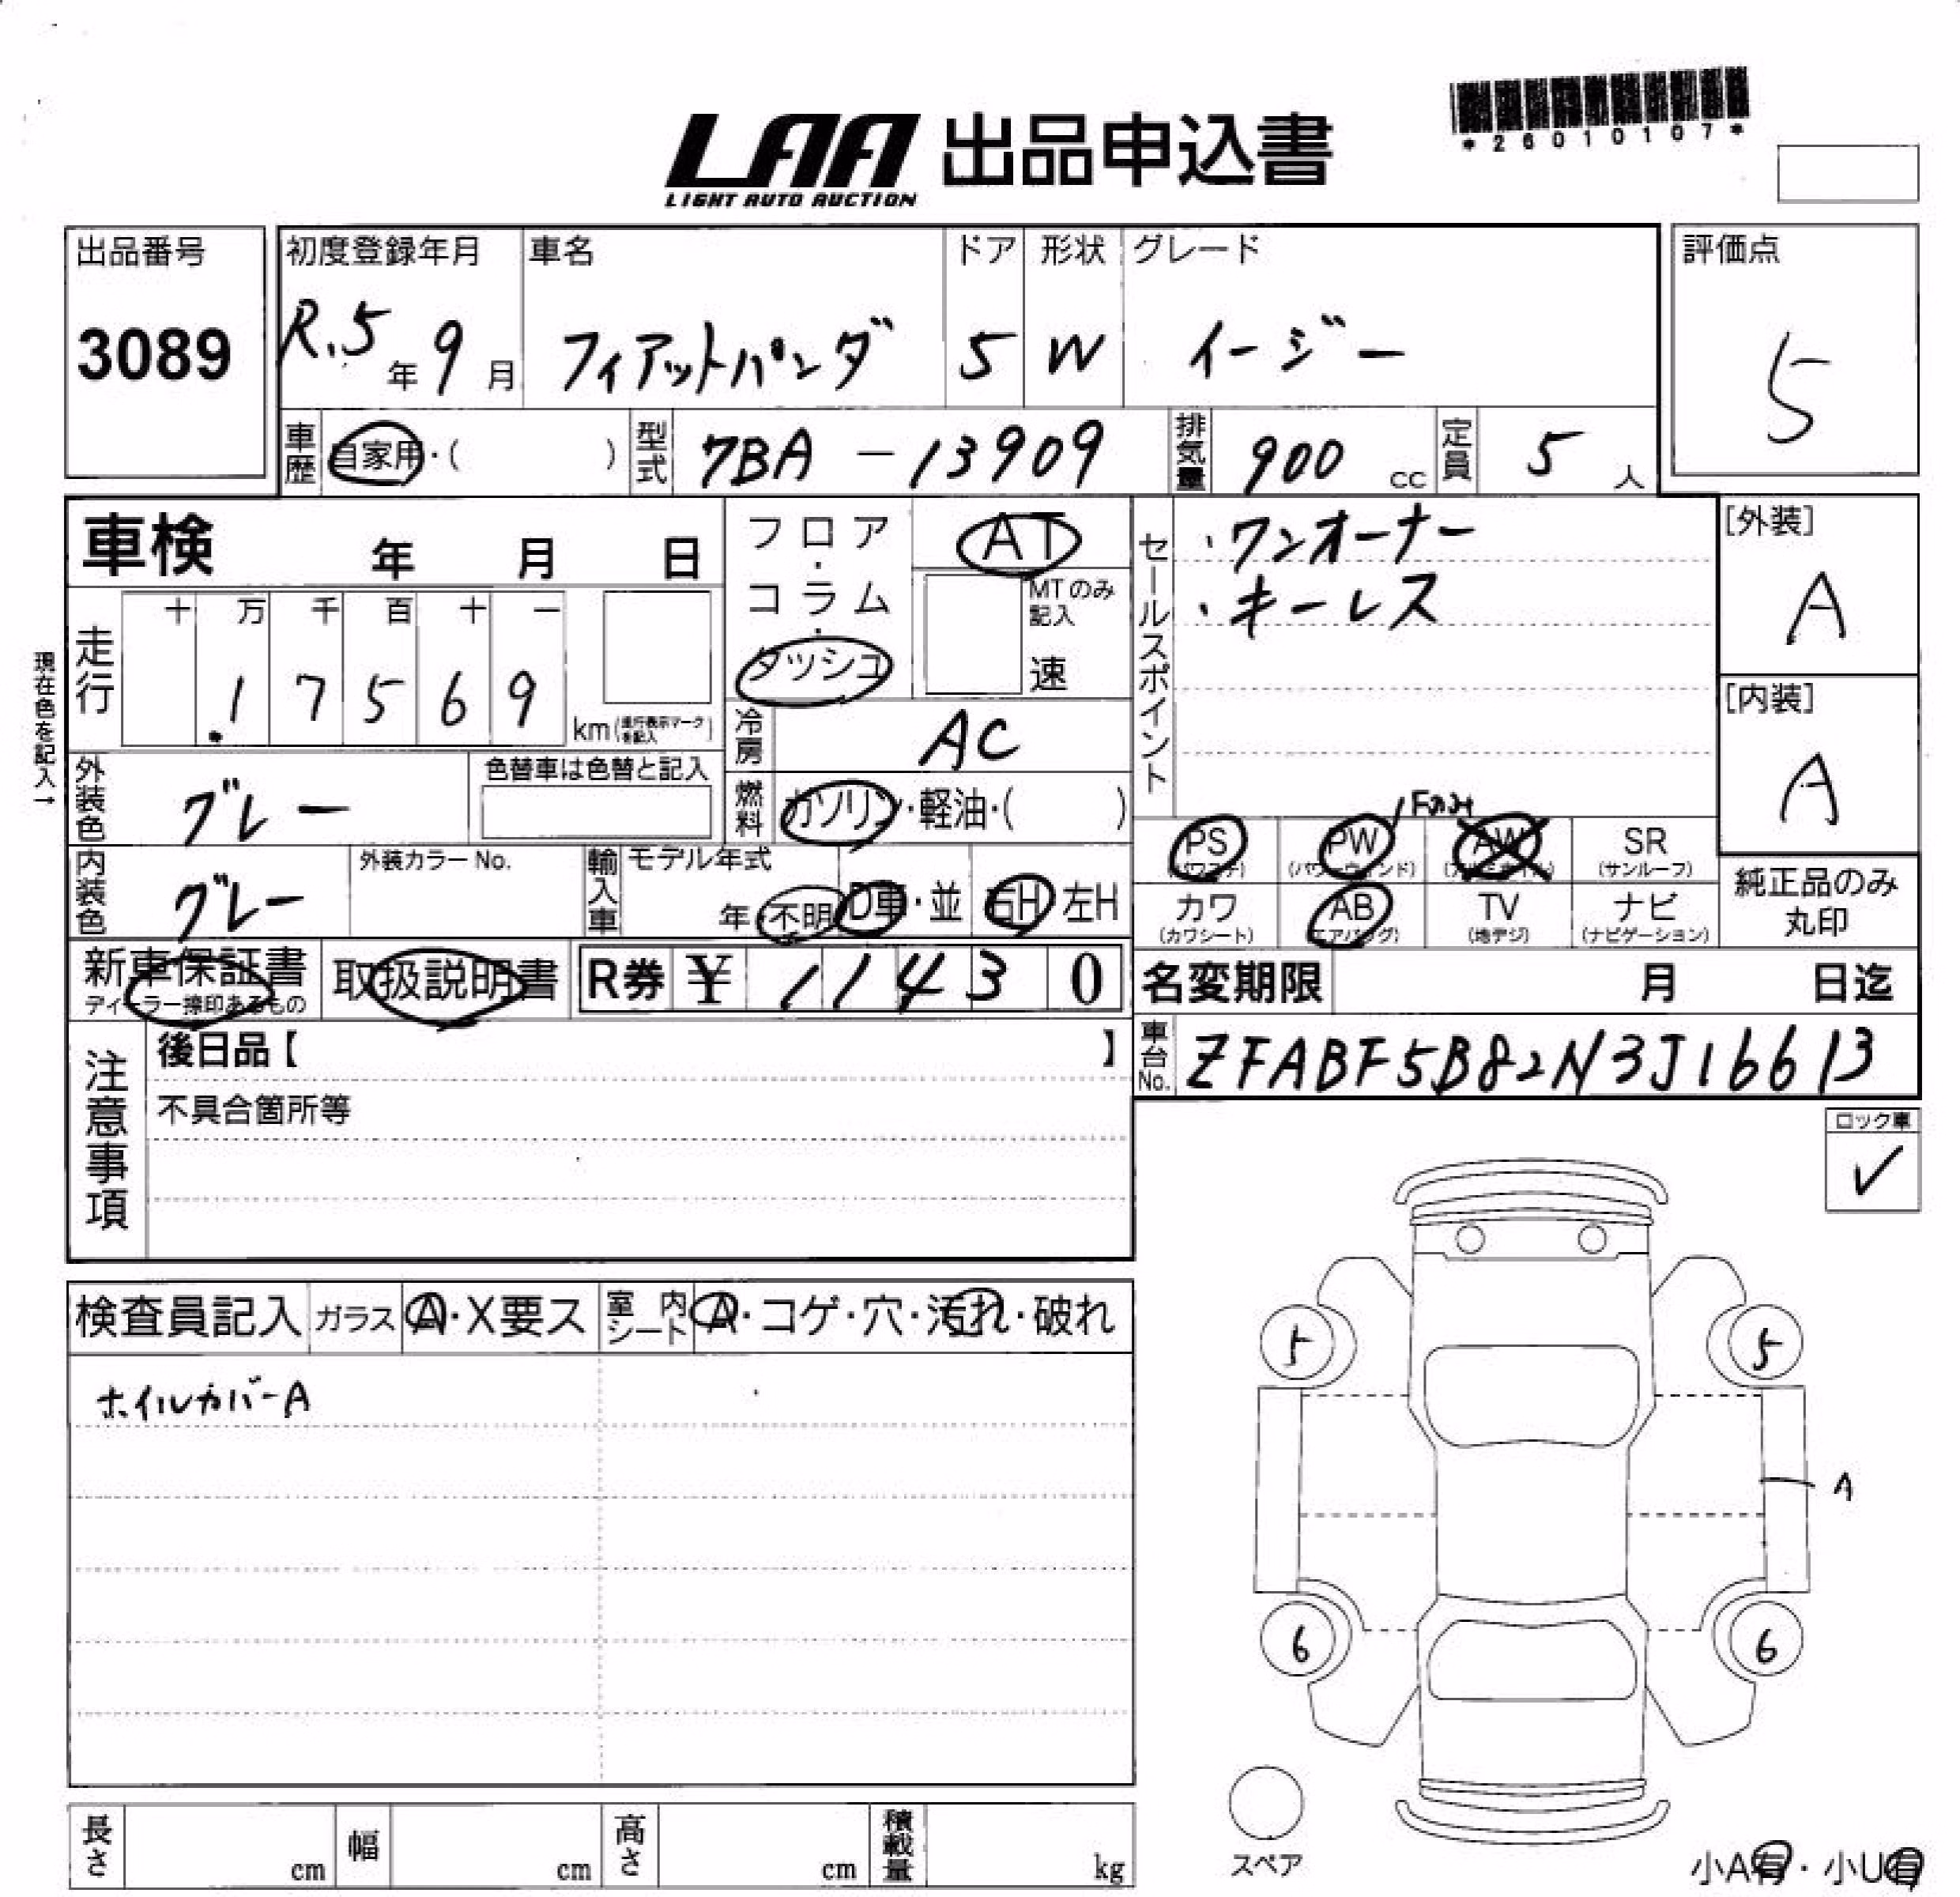 *26010107*
LAA 出品申込書
LIGHT AUTO AUCTION
出品番号 3089
初度登録年月 R.5年9月
車名 フィアットパンダ
ドア 5
形状 W
グレード イージー
評価点 5
車歴 自家用・( )
型式 7BA-13909
排気量 900 cc
定員 5 人
車検 年 月 日
現在色を記入→
走行 十 万 千 百 十 一
1 7 5 6 9 km (走行表示マークを記入)
フロア・コラム・ダッシュ
AT
MTのみ記入
速
冷房 AC
燃料 ガソリン・軽油・( )
外装色 グレー
色替車は色替と記入
内装色 グレー
外装カラーNo.
輸入車 モデル年式
年・不明 D車・並 右H 左H
セールスポイント
・ワンオーナー
・キーレス
[外装] A
[内装] A
Fのみ
PS (パワステ) PW (パワーウィンド) AW (アルミホイル) SR (サンルーフ)
カワ (カワシート) AB (エアバッグ) TV (地デジ) ナビ (ナビゲーション)
純正品のみ丸印
新車保証書
ディーラー捺印あるもの
取扱説明書
R券 ¥ 11430
名変期限 月 日迄
車台No. ZFABF5B82N3J16613
注意事項
後日品【 】
不具合箇所等
ロック車
✓
検査員記入 ガラス A・X要ス 室内シート A・コゲ・穴・汚れ・破れ
ホイルカバーA
5 5
A
6 6
スペア
長さ cm 幅 cm 高さ cm 積載量 kg
小A有・小U有